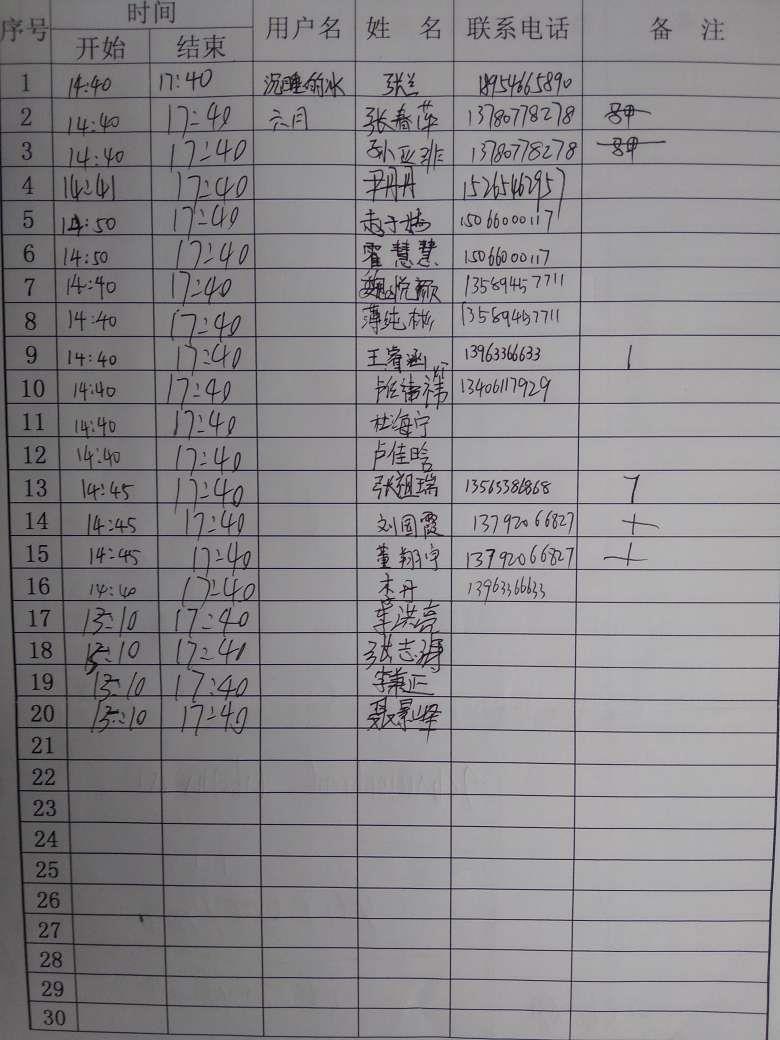 序号 时间 用户名 姓 名 联系电话 备 注
开始 结束
1 14:40 17:40 沉睡的冰 张兰 18954665890
2 14:40 17:40 六月 张春萍 13780778278
3 14:40 17:40 孙亚菲 13780778278
4 14:41 17:40 尹丹丹 15265462957
5 14:50 17:40 15066000117
6 14:50 17:40 霍慧慧 15066000117
7 14:40 17:40 魏悦颜 13589457711
8 14:40 17:40 薄纯彬 13589457711
9 14:40 17:40 王睿涵 13963366633
10 14:40 17:40 13406117929
11 14:40 17:40 杜海宁
12 14:40 17:40 卢佳晗
13 14:45 17:40 张祖瑞 13563386868
14 14:45 17:40 刘国霞 13792066827
15 14:45 17:40 董翔宇 13792066827
16 14:40 17:40 李丹 13963366633
17 15:10 17:40 李洪亮
18 15:10 17:40 张志博
19 15:10 17:40 李兼正
20 15:10 17:40 聂景峰
21
22
23
24
25
26
27
28
29
30